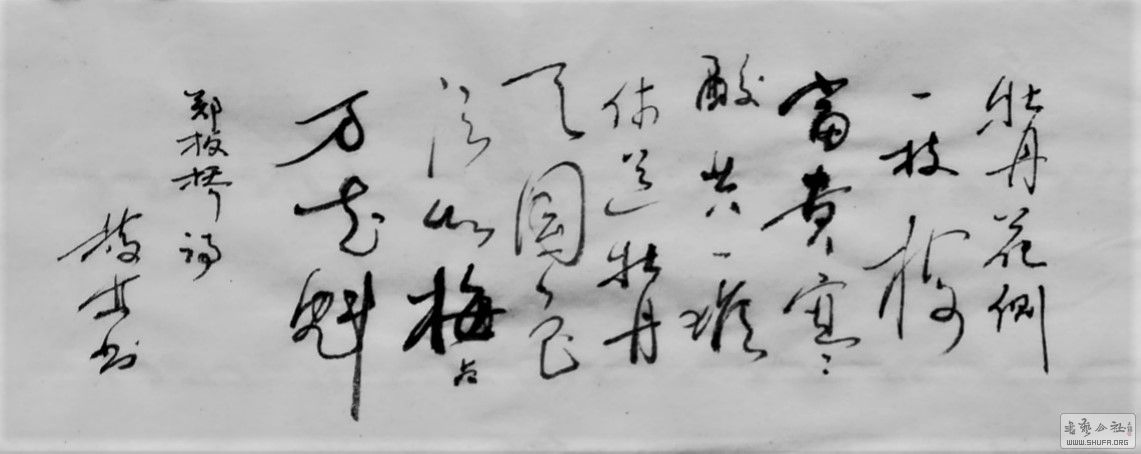 牡丹花侧
一枝梅
富贵寒
酸共一堆
休道牡丹
天国色
梅占
万花魁
郑板桥诗
书
书艺公社
WWW.SHUFA.ORG